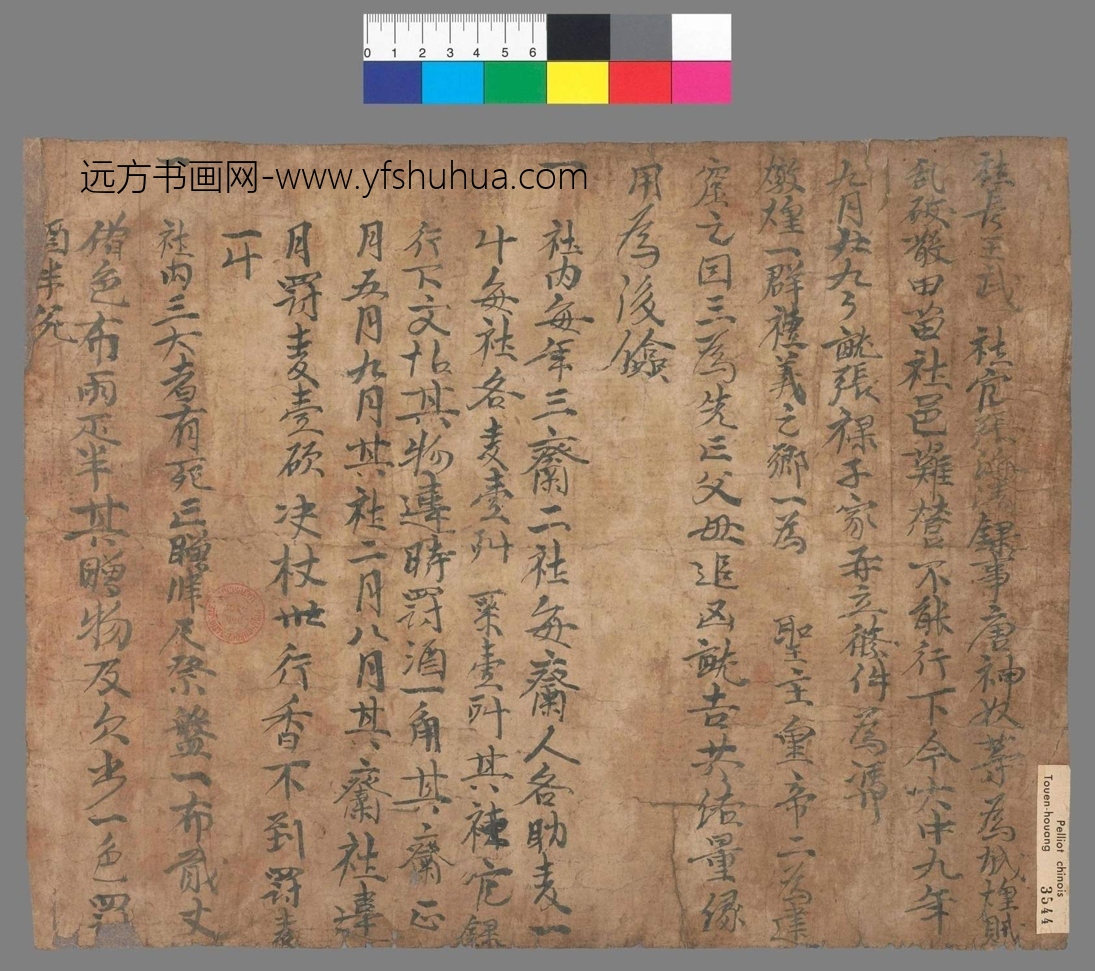 0 1 2 3 4 5 6
远方书画网-www.yfshuhua.com
社長王武 社官張海清錄事唐神奴等為城煌賊
乱破散田苗社邑難營不能行下今大中九年
九月廿九日就張祿子家再立條件為憑
燉煌一群禮義之鄉一為 聖主皇帝二為建
窟之因三為先亡父母追凶就吉共結量緣
用為後驗
一社內每年三齋二社每齋人各助麦一
斗每社各麦壹㪷 粟壹㪷其社官錄
行下文帖其物違時罰酒一角其齋正
月五月九月其社二月八月其齋社違
月罰麦壹碩決杖卅行香不到罰麦
一斗
一社內三大者有死亡贈肆尺祭盤一布貳丈
借色布兩疋半其贈物及欠少一色罰
酒半瓮
Pelliot chinois
Touen-houang 3544